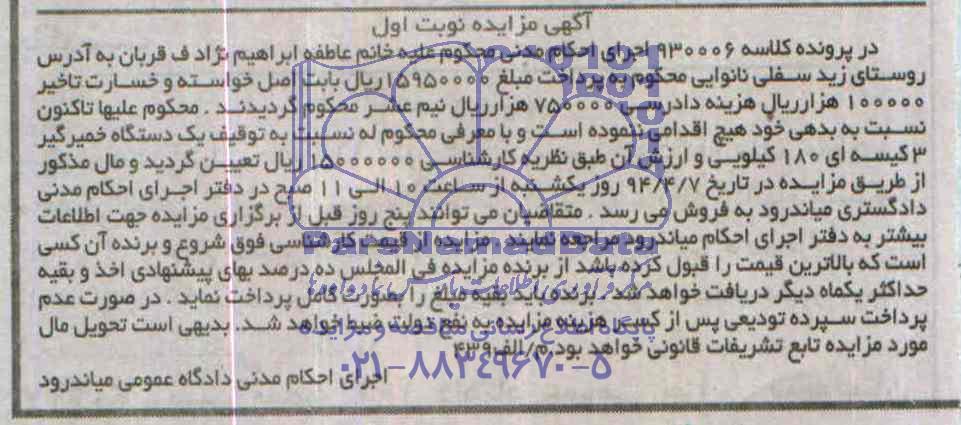 آگهی مزایده نوبت اول
در پرونده کلاسه ۹۳۰۰۰۶ اجرای احکام مدنی محکوم علیه خانم عاطفه ابراهیم نژاد ف قربان به آدرس
روستای زید سفلی نانوایی محکوم به پرداخت مبلغ ۱۵۹۵۰۰۰۰ ریال بابت اصل خواسته و خسارت تاخیر
۱۰۰۰۰۰ هزارریال هزینه دادرسی ۷۵۰۰۰۰۰ هزارریال نیم عشر محکوم گردیدند . محکوم علیها تاکنون
نسبت به بدهی خود هیچ اقدامی ننموده است و با معرفی محکوم له نسبت به توقیف یک دستگاه خمیرگیر
۳ کیسه ای ۱۸۰ کیلویی و ارزش آن طبق نظریه کارشناسی ۱۵۰۰۰۰۰۰۰ ریال تعیین گردید و مال مذکور
از طریق مزایده در تاریخ ۹۴/۴/۷ روز یکشنبه از ساعت ۱۰ الی ۱۱ صبح در دفتر اجرای احکام مدنی
دادگستری میاندرود به فروش می رسد . متقاضیان می توانند پنج روز قبل از برگزاری مزایده جهت اطلاعات
بیشتر به دفتر اجرای احکام میاندرود مراجعه نمایند . مزایده از قیمت کارشناسی فوق شروع و برنده آن کسی
است که بالاترین قیمت را قبول کرده باشد از برنده مزایده فی المجلس ده درصد بهای پیشنهادی اخذ و بقیه
حداکثر یکماه دیگر دریافت خواهد شد . برنده باید بقیه مبلغ را بصورت کامل پرداخت نماید . در صورت عدم
پرداخت سپرده تودیعی پس از کسر هزینه مزایده به نفع دولت ضبط خواهد شد . بدیهی است تحویل مال
مورد مزایده تابع تشریفات قانونی خواهد بود.م/الف ۴۳۹
اجرای احکام مدنی دادگاه عمومی میاندرود
ParsNamadData
پایگاه اطلاع رسانی مناقصه و مزایده
۰۲۱-۸۸۳۴۹۶۷۰-۵